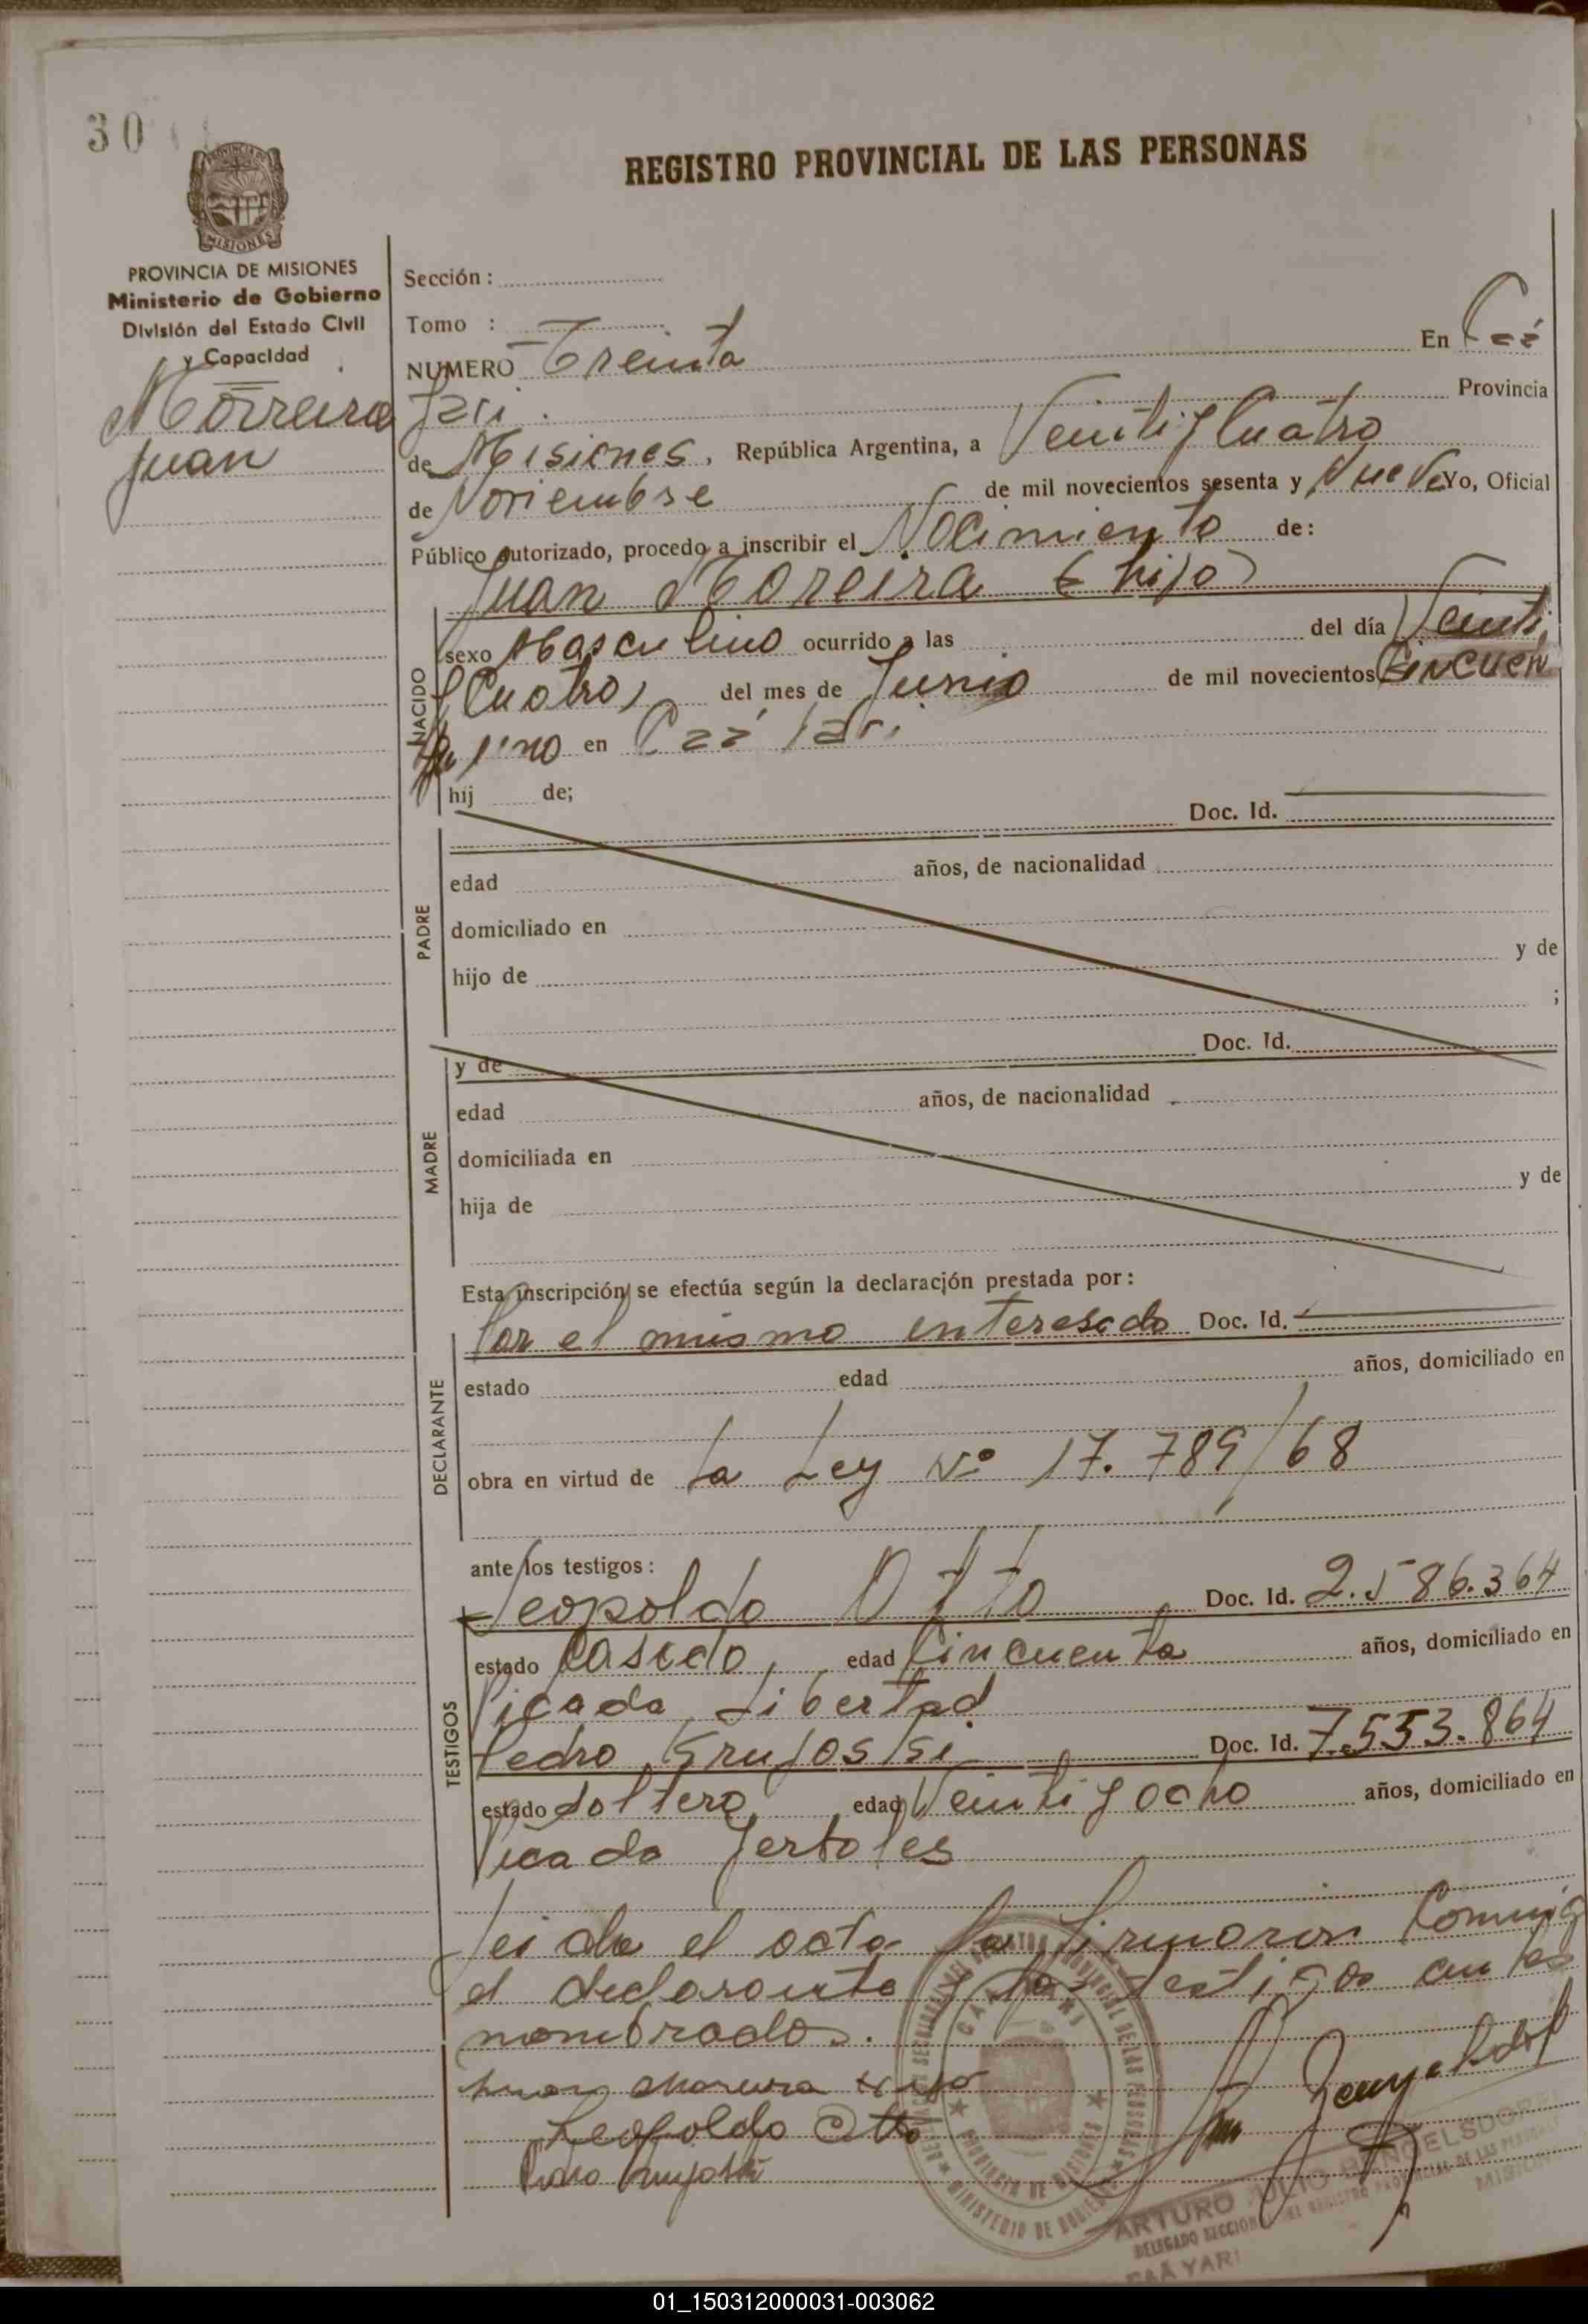 30
REGISTRO PROVINCIAL DE LAS PERSONAS
PROVINCIA DE MISIONES
Ministerio de Gobierno
División del Estado Civil
y Capacidad
Morreira
Juan
Sección :
Tomo :
NUMERO Treinta En Caá
Yari. Provincia
de Misiones, República Argentina, a Veinti y Cuatro
de Noviembre de mil novecientos sesenta y Nueve Yo, Oficial
Público autorizado, procedo a inscribir el Nacimiento de:
Juan Moreira (hijo)
NACIDO
sexo Masculino ocurrido a las del día Veinti
y Cuatro, del mes de Junio de mil novecientos Cincuen
ta y uno en Caá Yari
hij de;
Doc. Id.
PADRE
edad años, de nacionalidad
domiciliado en
hijo de y de
;
MADRE
y de Doc. Id.
edad años, de nacionalidad
domiciliada en
hija de y de
Esta inscripción se efectúa según la declaración prestada por:
DECLARANTE
Por el mismo interesado Doc. Id.
estado edad años, domiciliado en
obra en virtud de La Ley Nº 17.789/68
ante los testigos:
TESTIGOS
Leopoldo Otto Doc. Id. 2.586.364
estado Casado, edad Cincuenta años, domiciliado en
Picada Libertad
Pedro Doc. Id. 7.553.864
estado Soltero, edad Veinti y ocho años, domiciliado en
Picada
Leida el acta la firmaron Conmigo
el declarante y los testigos antes
nombrados.
Juan Moreira hijo
Leopoldo Otto
ARTURO JULIO BENGELSDORF
DELEGADO SECCIONAL DEL REGISTRO PROVINCIAL DE LAS PERSONAS
MISIONES
CAA YARI
01_150312000031-003062